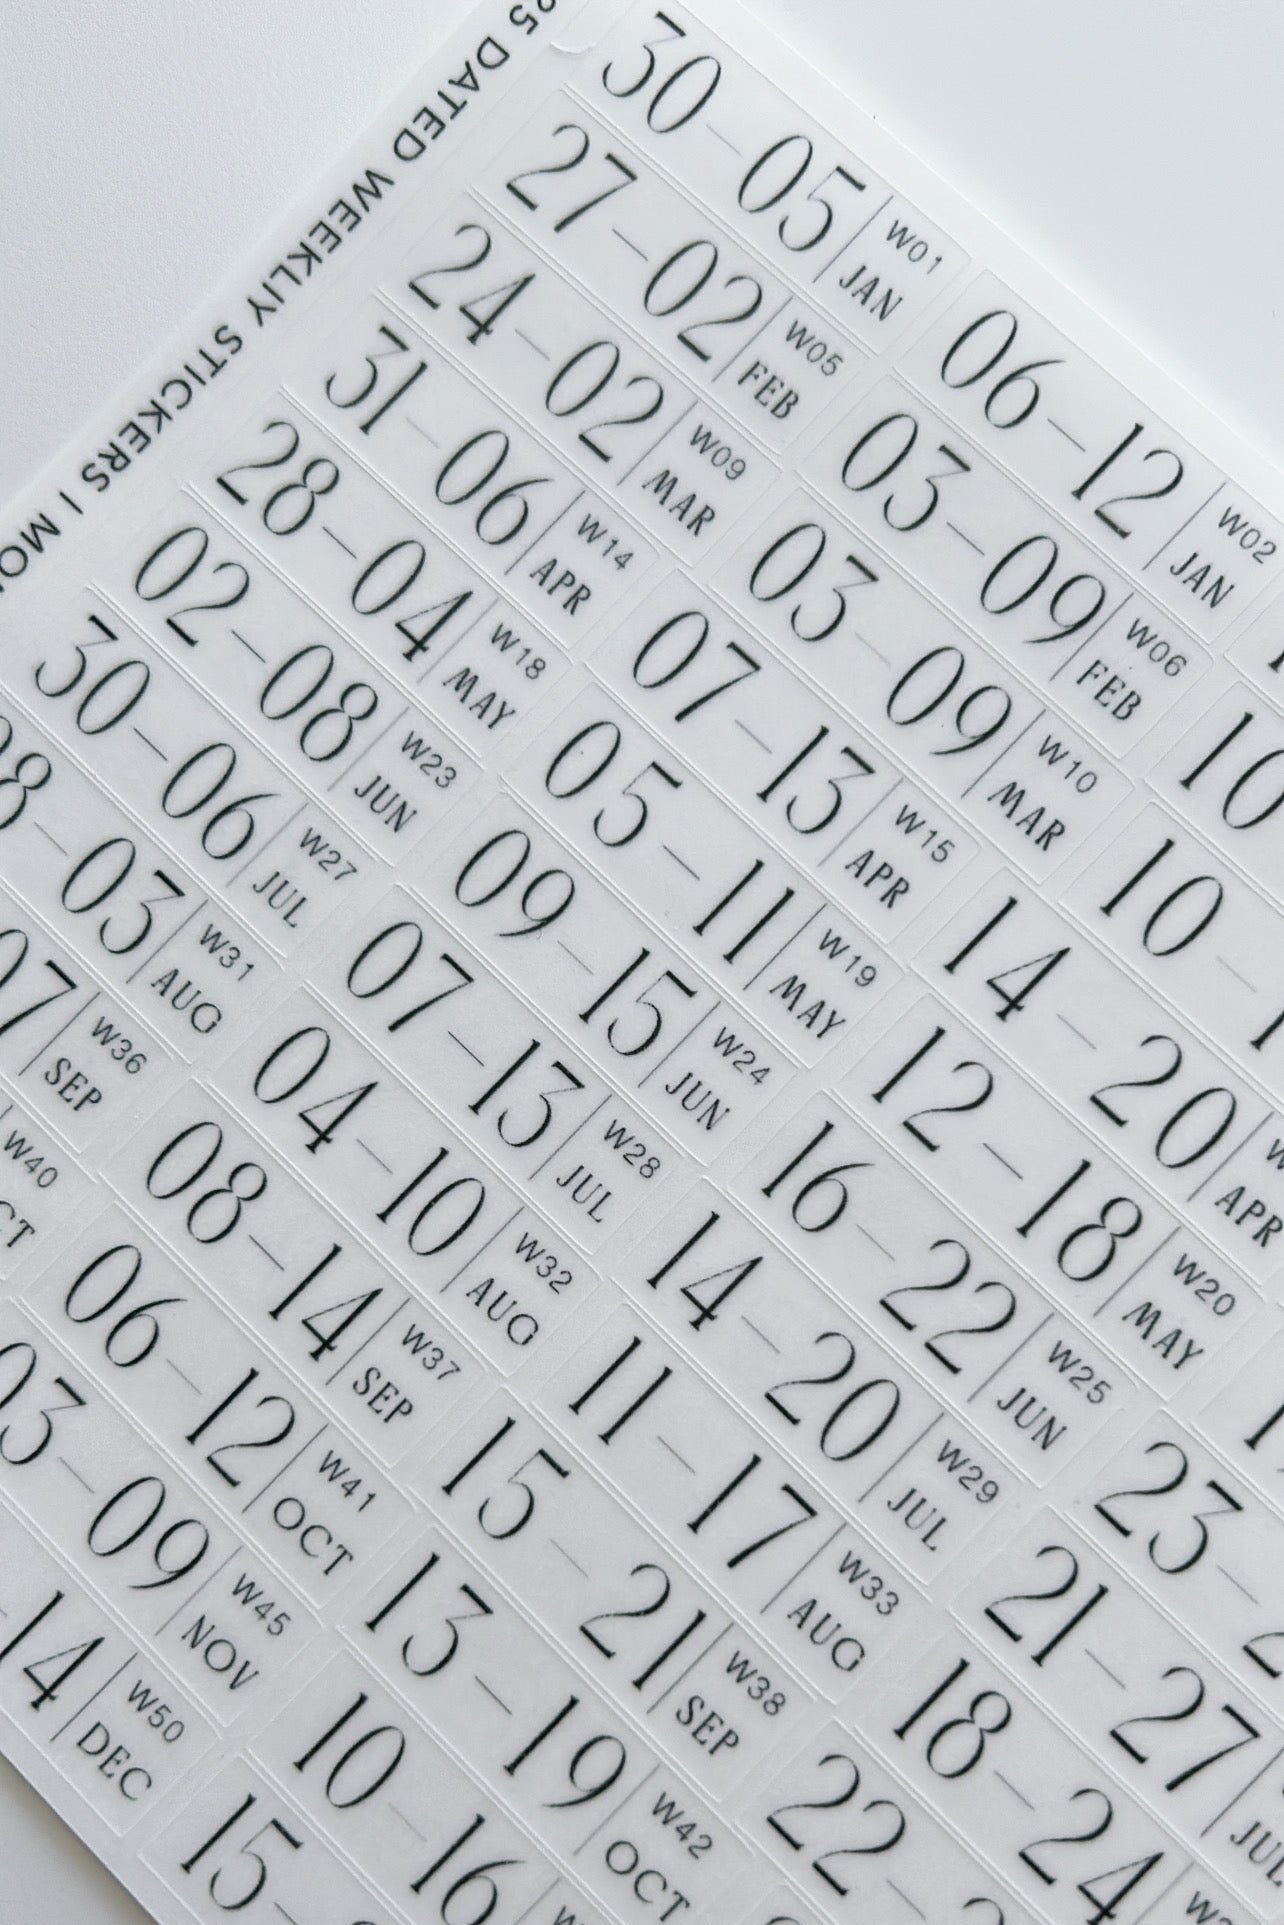 25 DATED WEEKLIY STICKERS | MO
30-05 W01 JAN
06-12 W02 JAN
27-02 W05 FEB
03-09 W06 FEB
10
24-02 W09 MAR
03-09 W10 MAR
10
31-06 W14 APR
07-13 W15 APR
14-20 APR
28-04 W18 MAY
05-11 W19 MAY
12-18 W20 MAY
02-08 W23 JUN
09-15 W24 JUN
16-22 W25 JUN
23
30-06 W27 JUL
07-13 W28 JUL
14-20 W29 JUL
21-27 JUL
03 W31 AUG
04-10 W32 AUG
11-17 W33 AUG
18-24
07 W36 SEP
08-14 W37 SEP
15-21 W38 SEP
22
W40
06-12 W41 OCT
13-19 W42 OCT
03-09 W45 NOV
10-16
14 W50 DEC
15